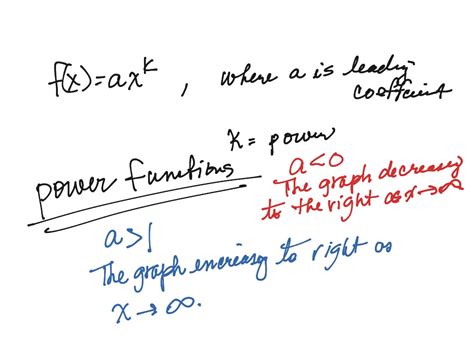 f(x)=ax^k , where a is leading
coefficient
k = power
power functions
a<0
The graph decreases
to the right as x→∞
a>1
The graph increases to right as
x→∞.